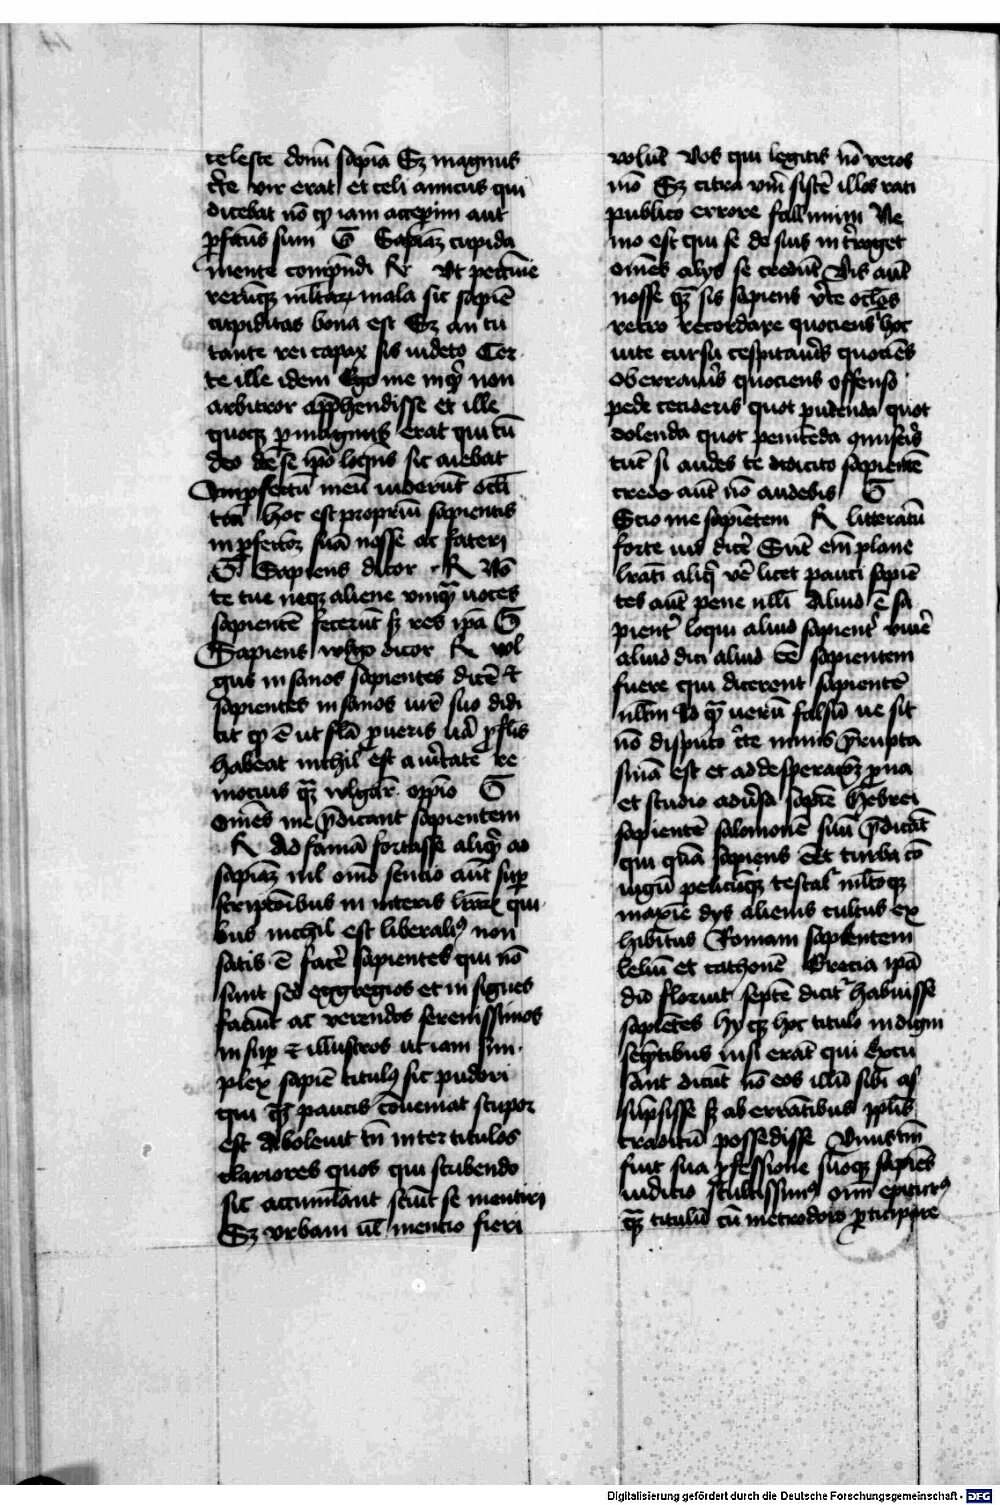 celeste donū sapīa Sꝫ magnus
c̄te vir erat et celi amicus qui
dicebat nō qꝫ iam acceperim aut
ꝑfectus sum G Sapīaꝫ cupida
mente compndi R Vt pecūnie
rerūqꝫ mltarꝝ mala sic sapiē
cupiditas bona est Sꝫ an tu
tante rei capax sis videto Cer
te ille idem Ego me inqͥt non
arbitror apphendisse et ille
quoqꝫ ꝑmagnus erat qui cū
deo de se ipō loqns sic aiebat
Imꝑfectū meū viderūt oclī
tui hoc est propriū sapientis
inꝑfectōꝫ suā nosse ac fateri
G Sapiens dicor R Nō
te tue neqꝫ aliene vmqͣ voces
sapientē fecerūt sꝫ res ipā G
Sapiens vlgo dicor R vol
gus insanos sapientes dicē ⁊
sapientes insanos iure suo didi
cit qꝫ ē ut flā ꝓ veris vā ꝓ flis
habeat nichil est a vitate re
mocius qͣꝫ vlgar oppīo G
Om̄es me p̄dicant sapientem
R Ad famā fortasse aliqͥd ad
sapīaꝫ nil om̄o sentio aūt suꝑ
scriptōibus in interis lrārꝝ qui
bus nichil est liberaliꝰ non
satis ē facē sapientes qui nō
sunt sed egregios et insignes
faciūt ac verendos serenissimos
insuꝑ ⁊ illustros ut iam sim
plex sapiē titulꝰ sic pudori
qui qͣꝫ paucis cōueniat stupor
est Aboleuit tn̄ inter titulos
clariores quos qui scribendo
sic accumlant sciūt se mentiri
Sꝫ vrbam vl̄ mencio fieri
volūt Vos qui legitis nō veros
mō Sꝫ citra vm̄ sistē illos rati
publico errore fallimini Ne
mo est qui se de suis interroget
om̄es alijs se credūt Vis aūt
nosse qͣꝫ sis sapiens v̄te oclos
retro recordare quociens hoc
vite cursu cespitaueris quociēs
oberraueris quociens offenso
pede cecideris quot pudenda quot
dolenda quot penitēda amiseris
tūc si audes te dicito sapientē
credo aūt nō audebis G
Scio me sapiētem R litteratū
forte vis dicē Sūt em̄ plane
lrāti aliqͥ ve licet pauci sapiē
tes aūt pene nlli Aliud ē sa
pienter loqui aliud sapienter viuē
aliud dici aliud ēe sapientem
fuere qui dicerent sapientē
nllm Id qͣ verū falsū ne sit
nō disputo c̄te nimis p̄rupta
snīa est et ad desperacōꝫ ꝓna
et studio aduersa sapiē Hebrei
sapientē salomonē suū p̄dicāt
qui qͣ sapiens ēet turba cō
iugū pelicūqꝫ testat mltoqꝫ
maxīe dijs alienis cultus ex
hibitus Romani sapientem
leliū et cathonē Grecia ipā
dū floruit septē dicit habuisse
sapiētes hij qꝫ hoc titulo indigni
seqͣntibus visi erāt qui excu
sant dicūt nō eos illū sibi as
sūpsisse sꝫ ab errātibus pplis
traditū possedisse Vnus tm̄
fuit sua ꝓfessione suoqꝫ sapiēs
iudicio stultissimꝰ oīm epicurꝰ
qͣꝫ titulū cū metrodoro ꝑticipare